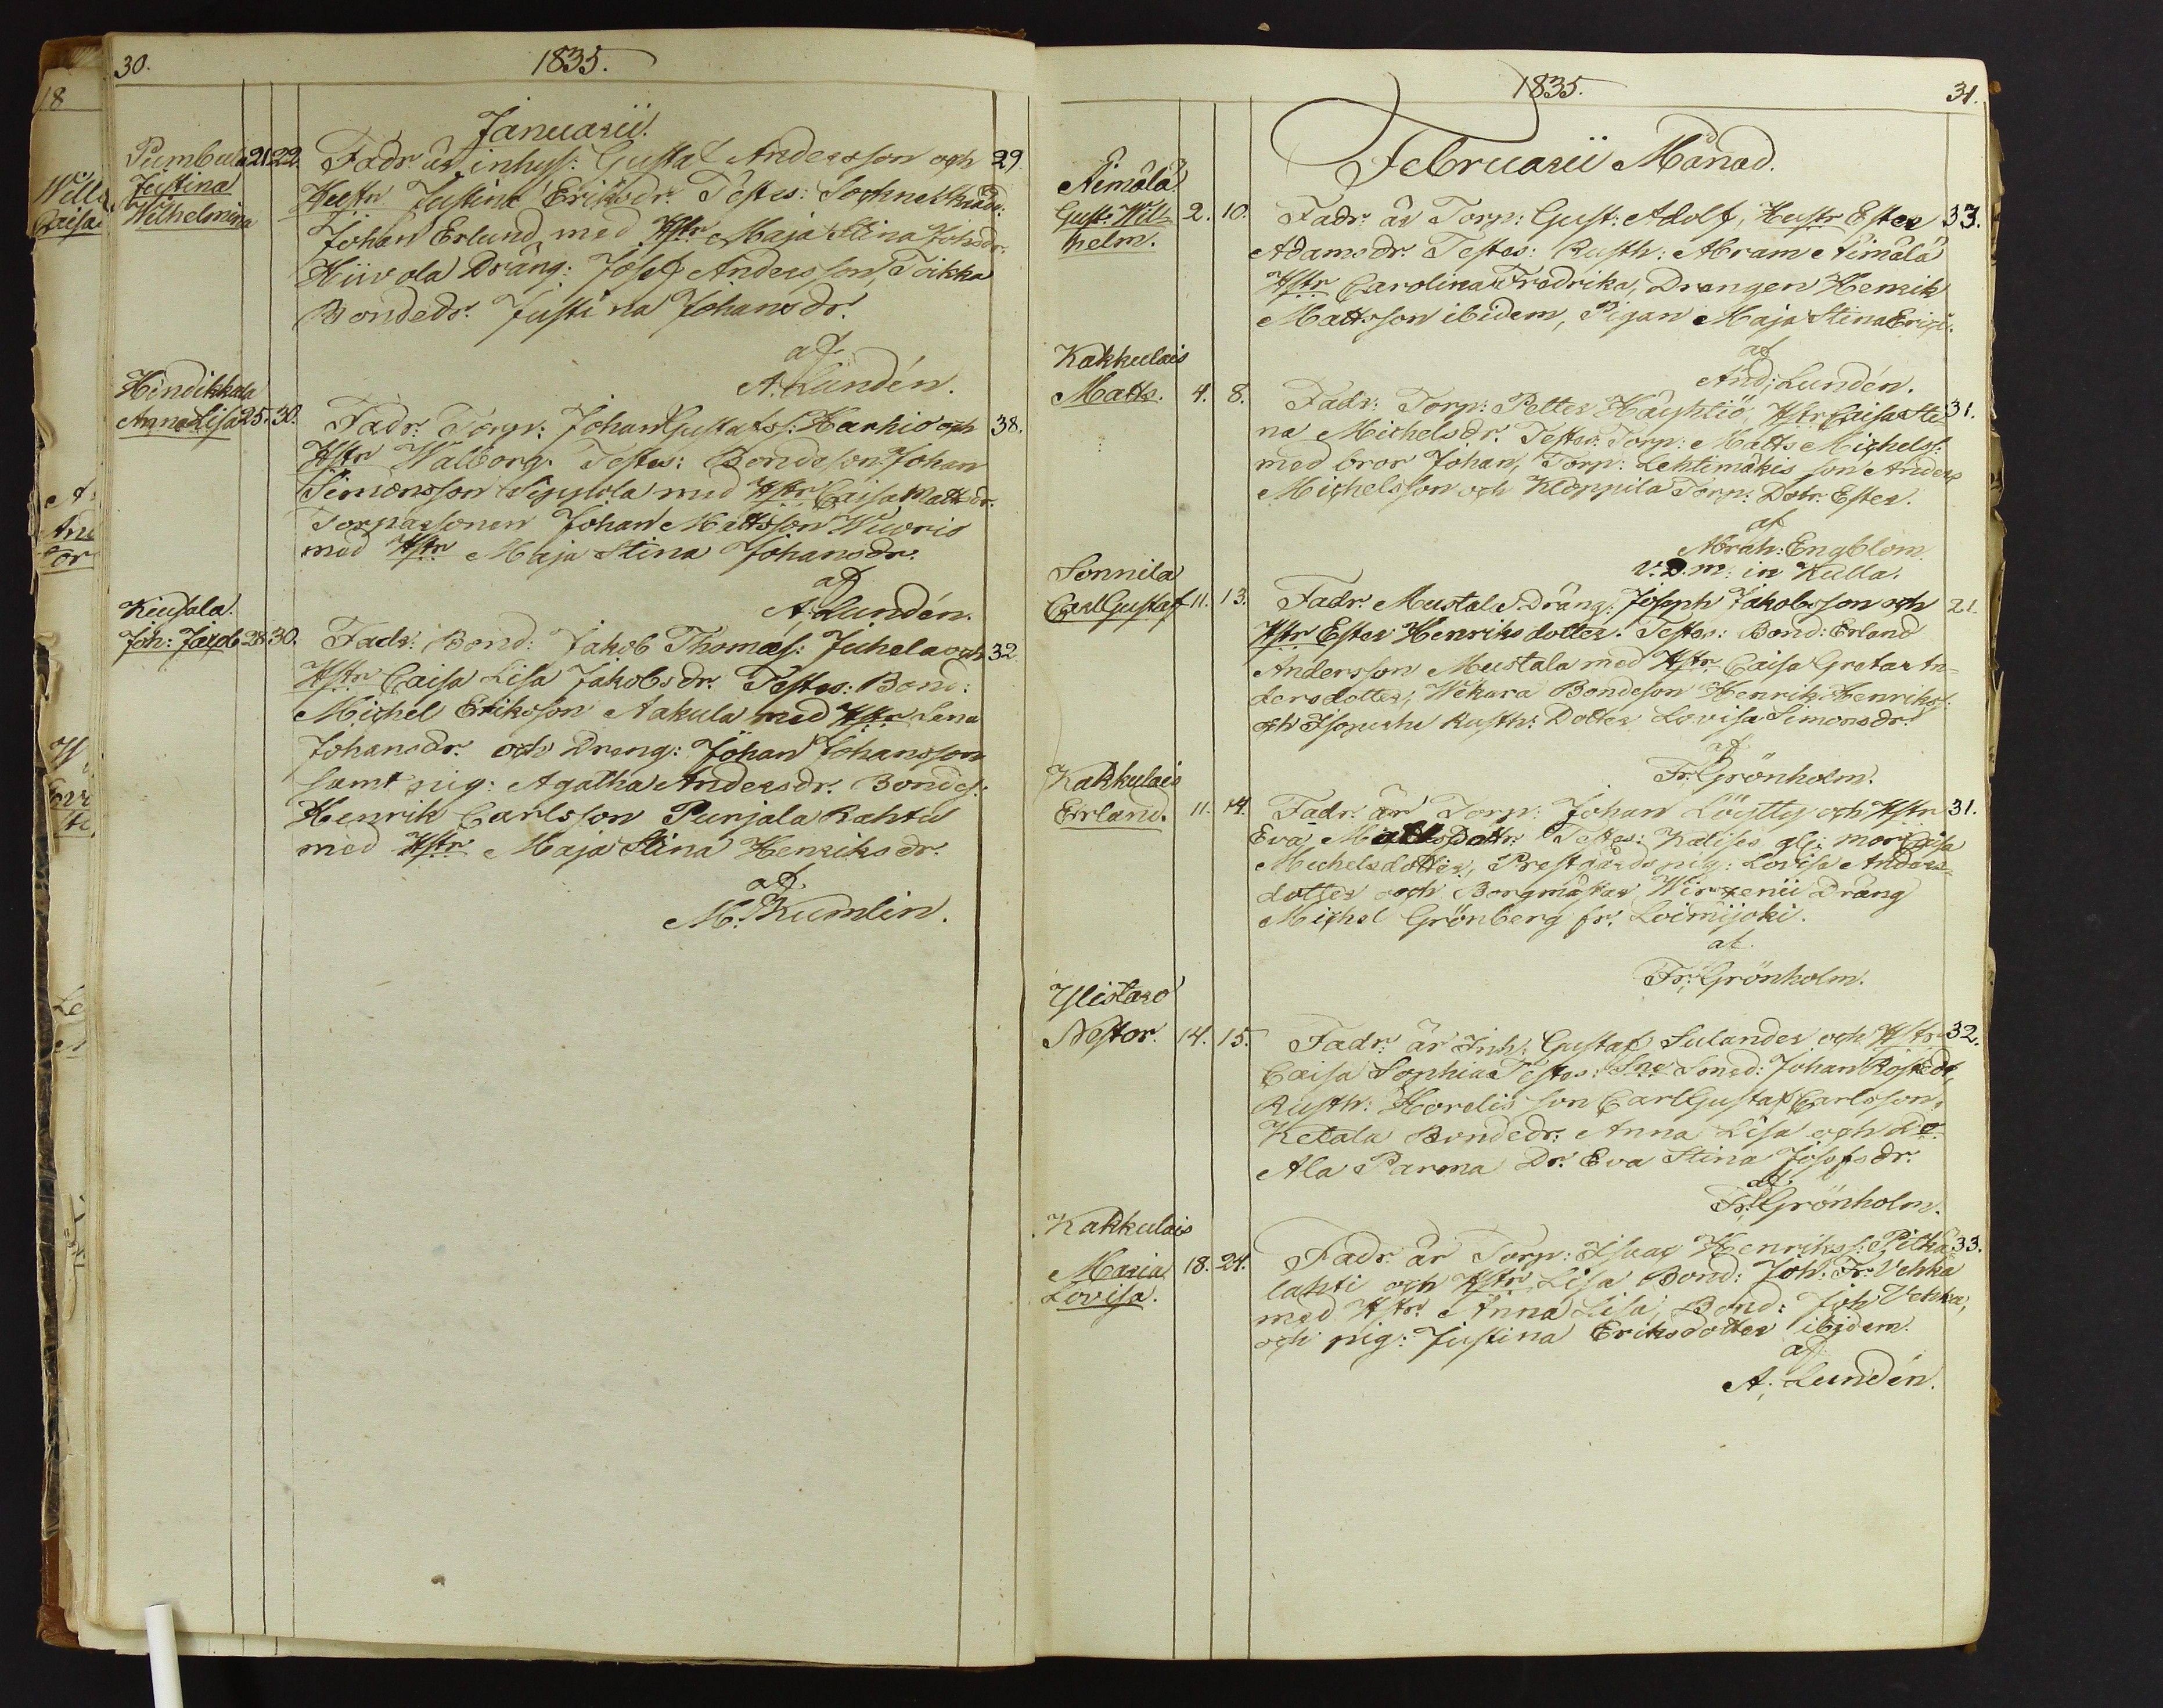 30.
1835.
Januarii.
Pumbula 21. 22. Fadr. är inhys: Gustaf Andersson och 29.
Justina Hustr Justina Eriksdr. Testes: Sockne Skräd:
Wilhelmina Johan Erlund med Hstr Maja Stina Johsdr.
Hiivola Dräng: Josef Andersson, Toikka
Bondedr. Justina Johansdr.
af
A. Lundén.
Hindikkala
Anna Lisa 25. 30. Fadr. Torp: Johan Gustafss: Karhio och 38.
Hstr Walborg. Testes: Bondeson Johan
Simonsson Sippola med Hstr Caisa Mattsdr.
Torparsonen Johan Mattsson Wuorio
med Hstr Maja Stina Johansdr.
af
A. Lundén.
Kiusala.
Joh: Jacob 28. 30. Fadr. Bond: Jakob Thomas: Juhela och 32
Hstr Caisa Lisa Jakobsdr. Testes: Bond:
Michel Eriksson Aakula med Hstr Lena
Johansdr. och Dreng: Johan Johansson
samt pig: Agatha Andersdr. Bondes:
Henrik Carlsson Purjala Rahtu
med Hstr Maja Stina Henriksdr.
af
M. Kumlin.
1835.
31.
Februarii Månad.
Äimälä
Gust: Wil- 2. 10. Fadr. är Torp: Gust: Adolf, Hustr Ester 33.
helm. Adamsdr. Testes: Rusth: Abram Äimälä
Hstr Carolina Fredrika, Drengen Henrik
Mattsson ibidem, Pigan Maja Stina Erici.
af
And: Lundén.
Kakkulais
Matts. 4. 8. Fadr: Torp: Petter Häyhtiö, Hstr Caisa Sti- 31.
na Michelsdr. Testes: Torp: Matts Michels:
med bror Johan, Torp: Lehtimäkis son Anders
Michelsson och Kloppila Torp: Dotr. Ester.
af
Abrah: Engblom
v. D. m: in Kulla.
Sonnila
Carl Gustaf 11. 13. Fadr. Mustala Dräng: Joseph Jakobsson och 21.
Hstr Ester Henriksdotter. Testes: Bond: Erland
Andersson Mustala med Hstr Caisa Greta An-
dersdotter, Wekara Bondeson Henrik Henriks:
och Rusth: Dotter Lovisa Simonsdr.
af
Fr: Grönholm.
Kakkulais
Erland. 11. 14. Fadr. är Torp: Johan Löytty och Hstr 31.
Eva Mattsdottr. Testes: mor Caisa
Michelsdotter, Prestgårds pig: Lovisa Anders-
dotter och Borgmästar Wirzenii Dräng
Michel Grönberg fr. Loimijoki.
af
Fr: Grönholm.
Ylistaro
Nestor. 14. 15. Fadr. är Inh: Gustaf Sulander och Hstr 32.
Caisa Sophia. Testes: Sne Smed: Johan Rostedt,
Rusth: Horelis son Carl Gustaf Carlsson,
Ketala Bondedr. Anna Lisa och do
Ala Parma Dr. Eva Stina Josefsdr.
af
Fr: Grönholm.
Kakkulais
Maria 18. 24. Fadr. är Torp: Isaac Henrikss: Pitkä 33.
Lovisa. lahti och Hstr Lisa Bond: Joh. Fr: Vehka
med Hstr. Anna Lisa, Bond: Joh Vehka,
och pig: Justina Eriksdotter ibidem.
af
A. Lundén.